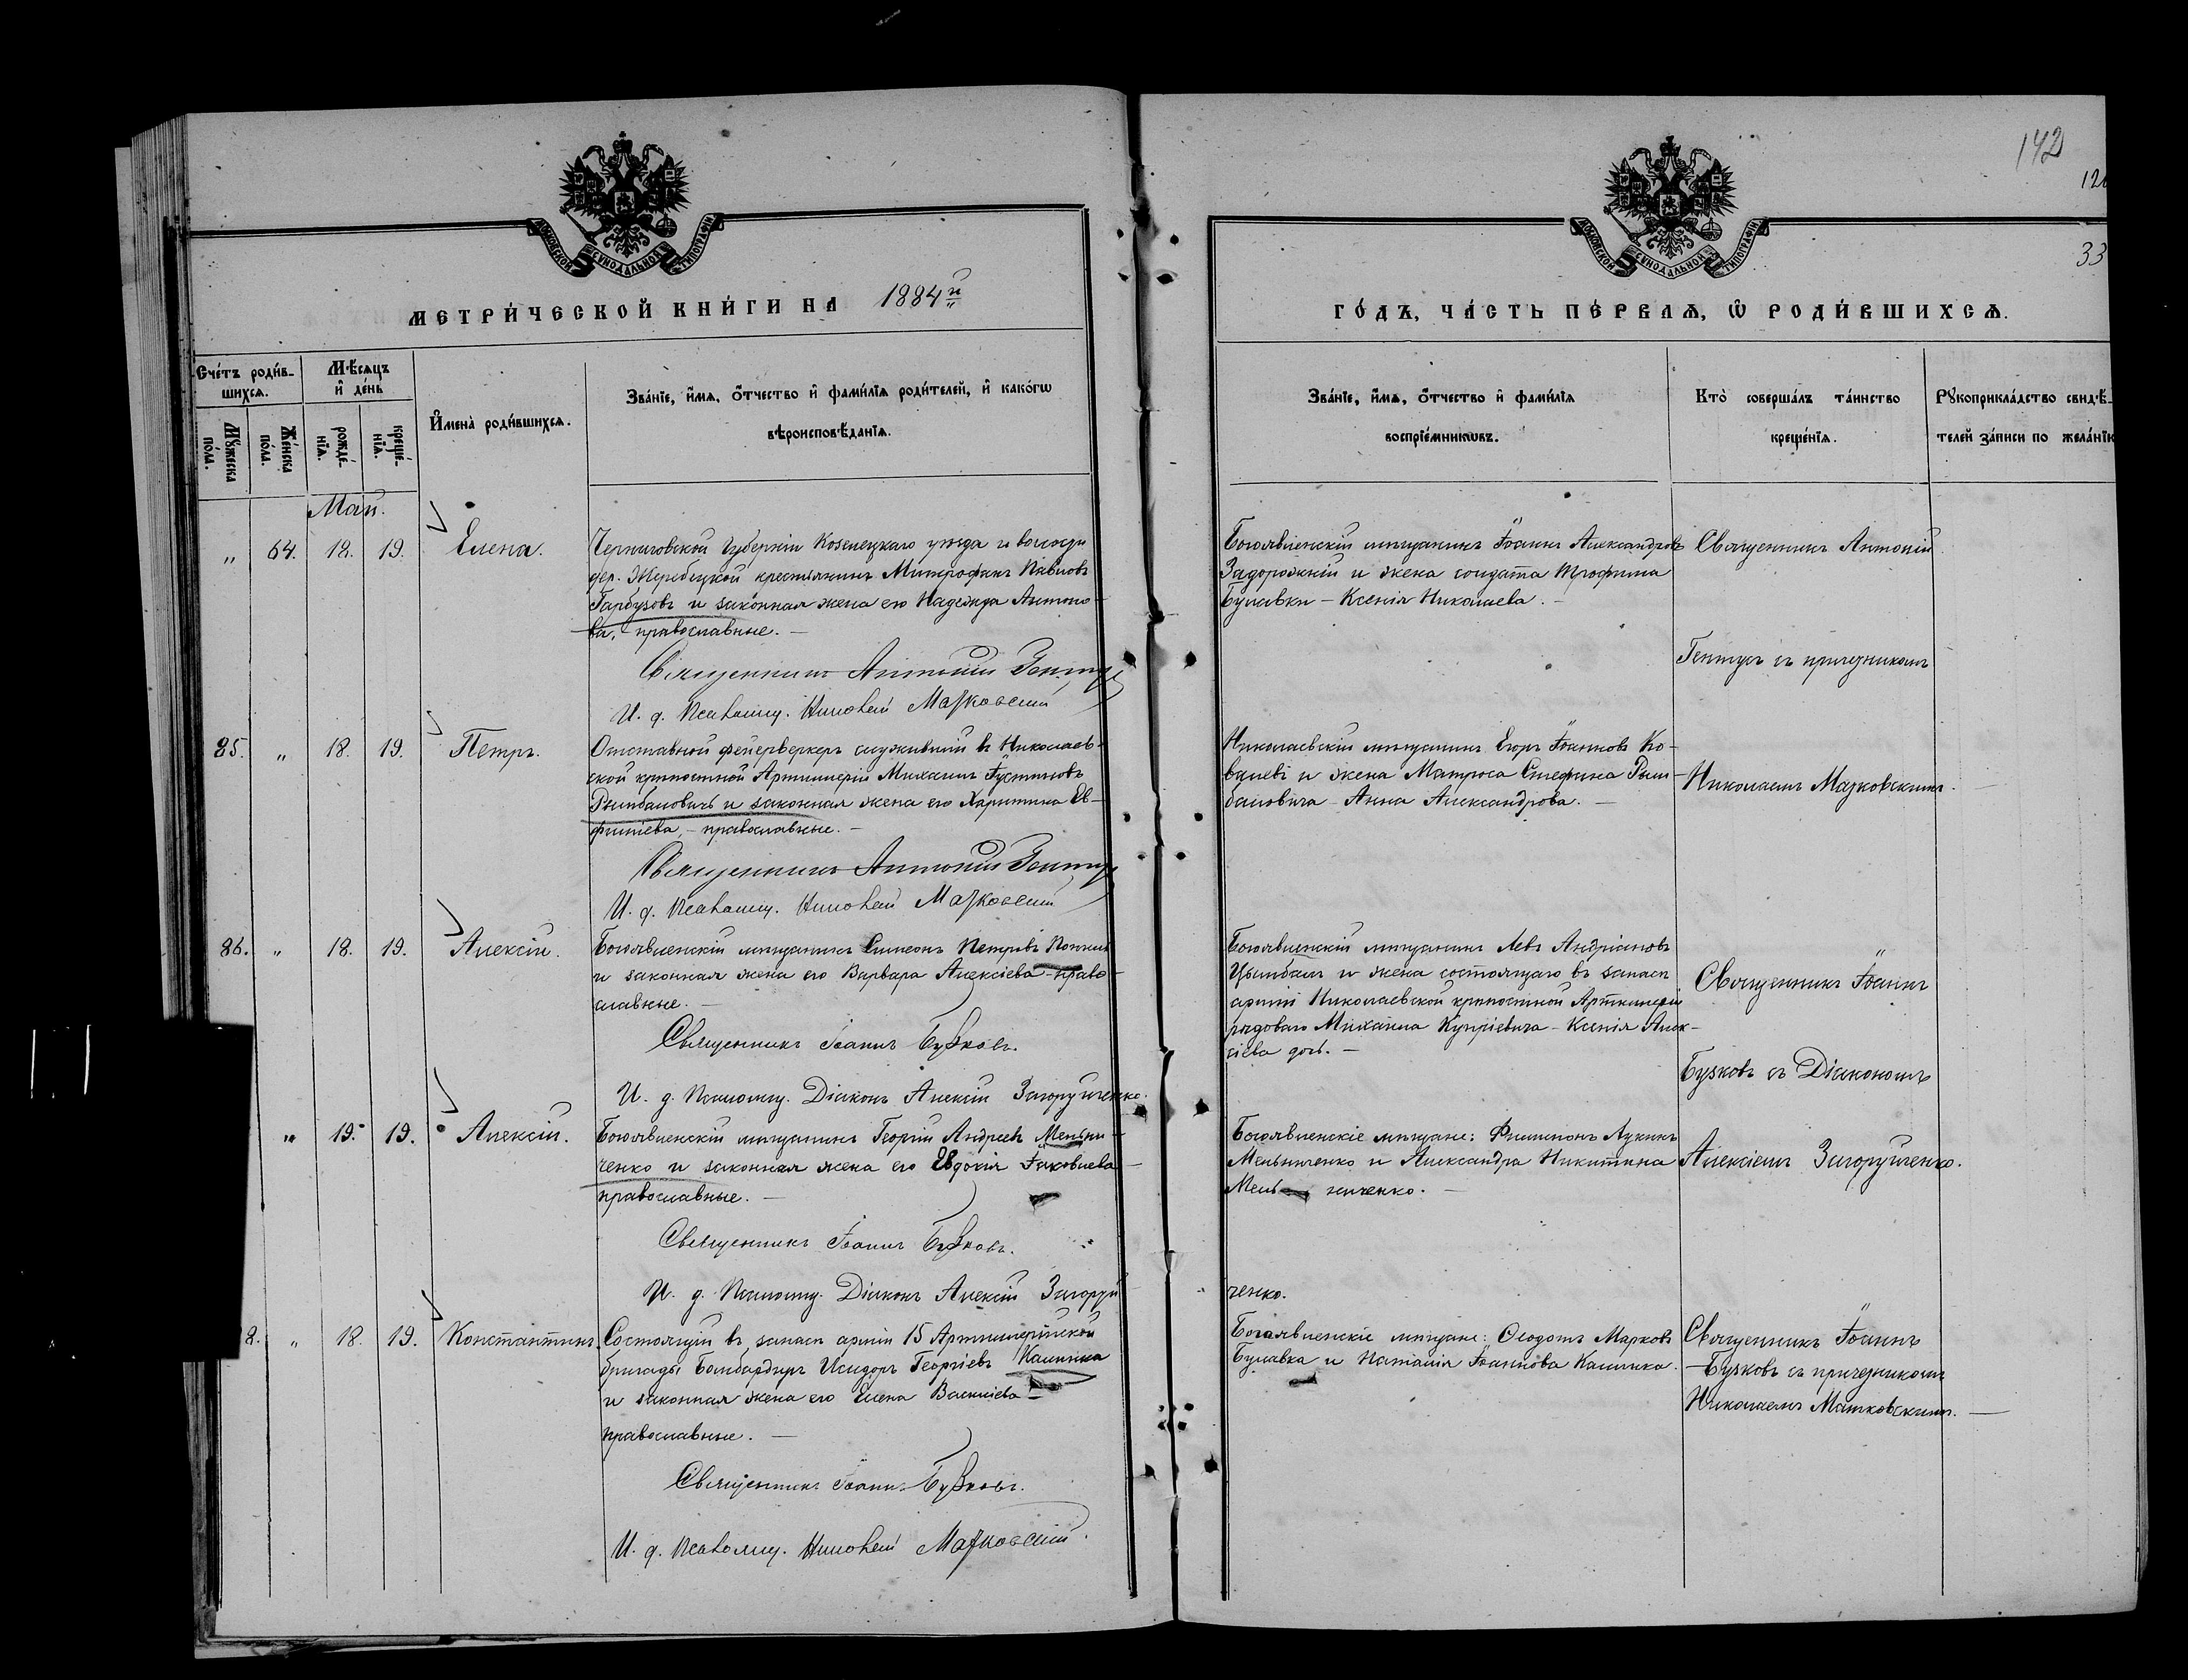 142
12
33
МОСКОВСКОЙ СѴНОДАЛЬНОЙ ТИПОГРАФІИ
МОСКОВСКОЙ СѴНОДАЛЬНОЙ ТИПОГРАФІИ
МЕТРИ́ЧЕСКОЙ КНИ́ГИ НА 1884й
ГО́ДЪ, ЧА́СТЬ ПЕ́РВАѦ, Ѡ РОДИ́ВШИХСѦ.
Сче́тъ роди́в-
шихсѧ.
Мꙋ́жеска по́ла.
Же́нска по́ла.
Мѣ́сѧцъ и҆ де́нь
рожде́-нїѧ.
креще́-нїѧ.
И҆мена̀ роди́вшихсѧ.
Зва́нїе, и҆́мѧ, ѻ҆́тчество и҆ фами́лїѧ роди́телей, и҆ како́гѡ
вѣроисповѣ́данїѧ.
Зва́нїе, и҆́мѧ, ѻ҆́тчество и҆ фами́лїѧ
воспрїе́мникѡвъ.
Кто̀ соверша́лъ та́инство
креще́нїѧ.
Рꙋкоприкла́дство свидѣ́-
телей за́писи по жела́нїю
Май.
„ 64. 18. 19. Елена.
Черниговской Губерніи Козелецкаго уѣзда и волости
дер. Жеребецкой крестьянинъ Митрофанъ Павловъ
Гарбузовъ и законная жена его Надежда Антоно-
ва, православные. —
Священникъ Антоній Гентус
И. д. Псаломщ. Николай Марковскій
Богоявленскій мѣщанинъ Іоаннъ Александровъ
Задорожній и жена солдата Трофима
Булавки — Ксенія Николаева. —
Священникъ Антоній
Гентусъ съ причетникомъ
Николаемъ Марковскимъ.
85. „ 18. 19. Петръ.
Отставной фейерверкеръ служившій въ Николаев-
ской крѣпостной Артиллеріи Михаилъ Іустиновъ
Рымбаловичъ и законная жена его Харитина Ев-
фиміева, — православные. —
Священникъ Антоній Гентус
И. д. Псаломщ. Николай Марковскій
Николаевскій мѣщанинъ Егоръ Іоанновъ Ко-
валевъ и жена Матроса Стефана Рым-
баловича — Анна Александрова. —
86. „ 18. 19. Алексій.
Богоявленскій мѣщанинъ Симеонъ Петровъ
и законная жена его Варвара Алексіева — право-
славные. —
Священникъ Іоаннъ Бузковъ.
И. д. Псаломщ. Діаконъ Алексій Загоруйченко.
Богоявленскій мѣщанинъ Левъ Андріановъ
Цымбалъ и жена состоящаго въ запасѣ
арміи Николаевской крѣпостной Артиллеріи
рядоваго Михаила Купріевича — Ксенія Алек-
сіева дочь. —
Священникъ Іоаннъ
Бузковъ съ Діакономъ
Алексіемъ Загоруйченко.
„ 19. 19. Алексій.
Богоявленскій мѣщанинъ Георгій Андреевъ Мельни-
ченко и законная жена его Евдокія Іаковлева —
православные. —
Священникъ Іоаннъ Бузковъ.
И. д. Псаломщ. Діаконъ Алексій Загоруй
ченко.
Богоявленскіе мѣщане: Филимонъ Лукинъ
Мельниченко и Александра Никитина
Мель ниченко. —
8. „ 18. 19. Константинъ.
Состоящій въ запасѣ арміи 15 Артиллерійской
бригады Бомбардиръ Исидоръ Георгіевъ Калинка
и законная жена его Елена Василіева —
православные. —
Священникъ Іоаннъ Бузковъ.
И. д. Псаломщ. Николай Марковскій.
Богоявленскіе мѣщане: Ѳеодотъ Марковъ
Булавка и Наталія Іоаннова Калинка.
Священникъ Іоаннъ
Бузковъ съ причетникомъ
Николаемъ Марковскимъ. —